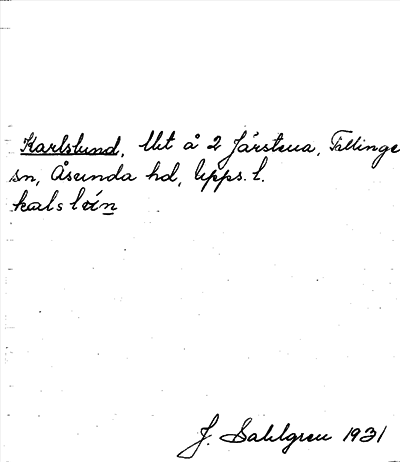 Karlslund, lht å 2 Järstena, Tillinge
sn, Åsunda hd, Upps. l.
J. Sahlgren 1931